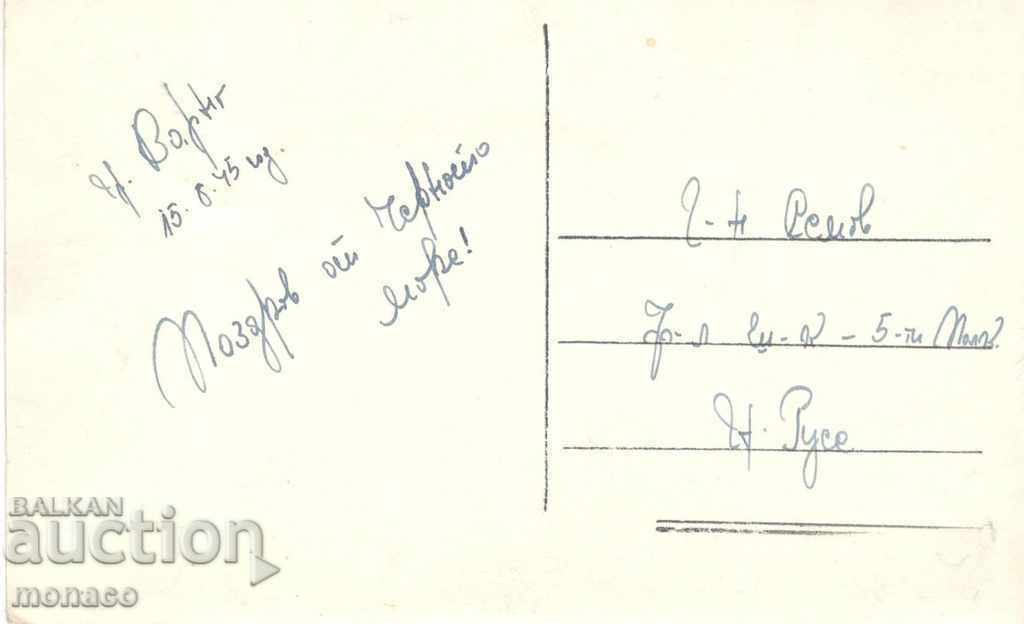 гр. Варна
15.8.45 год.
Поздрав от Черното
море!
Г-н Семов
5-ти Полк
гр. Русе
BALKAN
auction
monaco